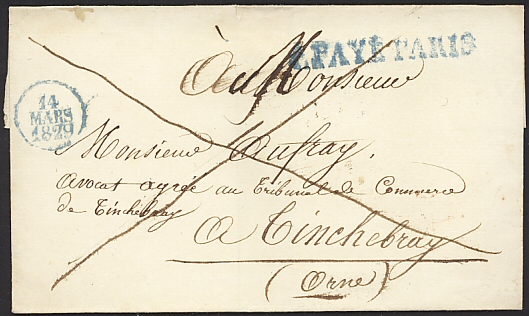 P.PAYÉ PARIS
À Monsieur
14
MARS
1829
Monsieur Aufray,
avocat agréé au Tribunal de Commerce
de Tinchebray
A Tinchebray
(Orne)